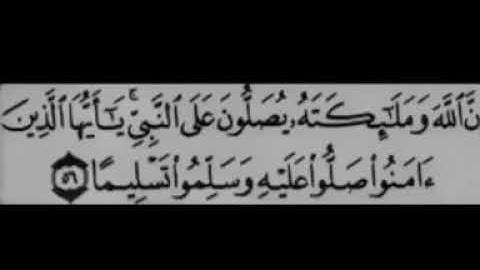 نَّ ٱللَّهَ وَمَلَـٰٓئِكَتَهُۥ يُصَلُّونَ عَلَى ٱلنَّبِىِّ ۚ يَـٰٓأَيُّهَا ٱلَّذِينَ
ءَامَنُوا۟ صَلُّوا۟ عَلَيْهِ وَسَلِّمُوا۟ تَسْلِيمًا ٥٦